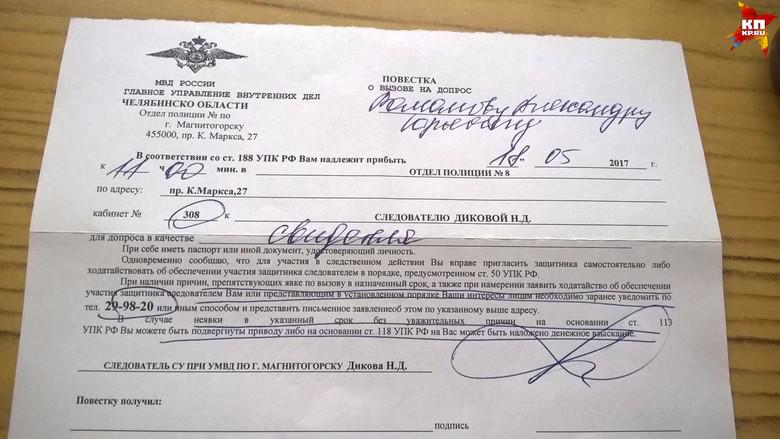 КП
KP.RU
МВД РОССИИ
ГЛАВНОЕ УПРАВЛЕНИЕ ВНУТРЕННИХ ДЕЛ
ЧЕЛЯБИНСКО ОБЛАСТИ
Отдел полиции № по
г. Магнитогорску
455000, пр. К. Маркса, 27
ПОВЕСТКА
О ВЫЗОВЕ НА ДОПРОС
Александру
Юрьевичу
В соответствии со ст. 188 УПК РФ Вам надлежит прибыть "18" 05 2017 г.
к 11 ч 00 мин. в ОТДЕЛ ПОЛИЦИИ № 8
по адресу: пр. К.Маркса,27
кабинет № 308 к СЛЕДОВАТЕЛЮ ДИКОВОЙ Н.Д.
для допроса в качестве свидетеля
При себе иметь паспорт или иной документ, удостоверяющий личность.
Одновременно сообщаю, что для участия в следственном действии Вы вправе пригласить защитника самостоятельно либо
ходатайствовать об обеспечении участия защитника следователем в порядке, предусмотренном ст. 50 УПК РФ.
При наличии причин, препятствующих явке по вызову в назначенный срок, а также при намерении заявить ходатайство об обеспечении
участия защитника следователем Вам или представляющим в установленном порядке Ваши интересы лицам необходимо заранее уведомить по
тел. 29-98-20 или иным способом и представить письменное заявлениеоб этом по указанному выше адресу.
В случае неявки в указанный срок без уважительных причин на основании ст. 113
УПК РФ Вы можете быть подвергнуты приводу либо на основании ст. 118 УПК РФ на Вас может быть наложено денежное взыскание.
СЛЕДОВАТЕЛЬ СУ ПРИ УМВД ПО Г. МАГНИТОГОРСКУ Дикова Н.Д.
Повестку получил:
подпись